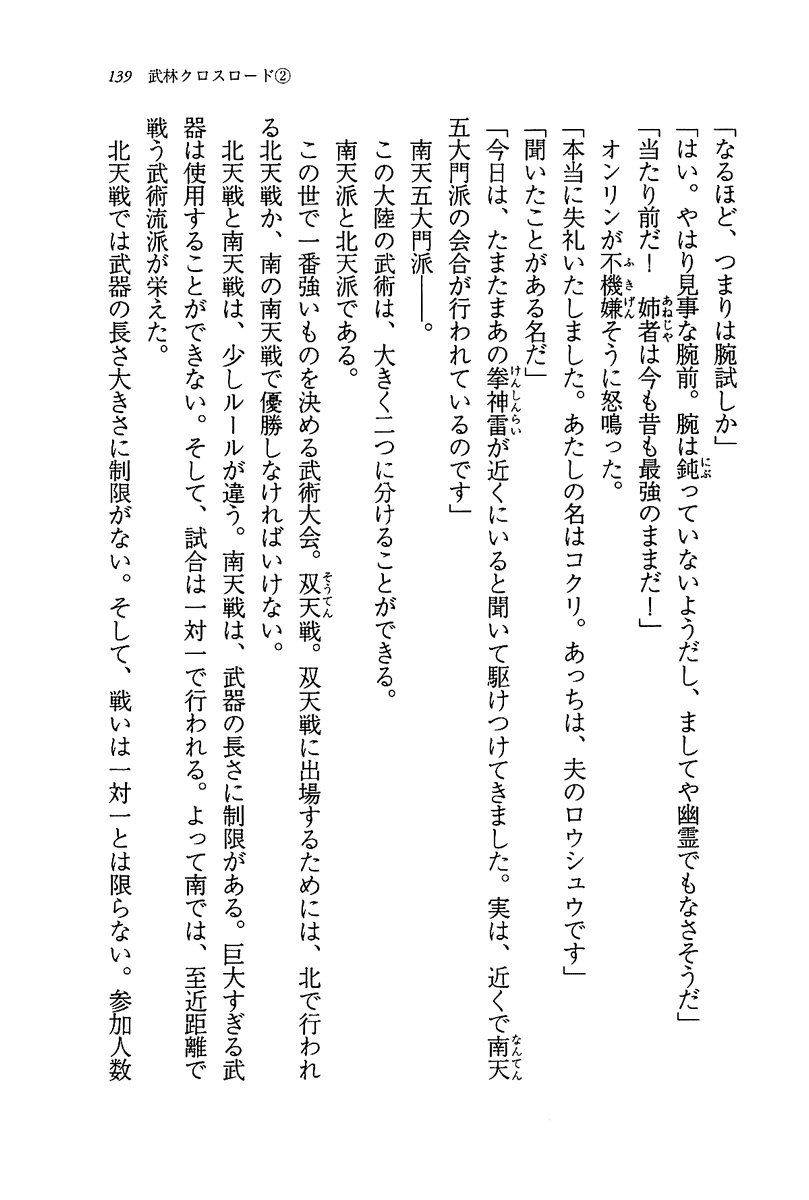 139 武林クロスロード②
「なるほど、つまりは腕試しか」
「はい。やはり見事な腕前。腕は鈍っていないようだし、ましてや幽霊でもなさそうだ」
「当たり前だ！　姉者は今も昔も最強のままだ！」
オンリンが不機嫌そうに怒鳴った。
「本当に失礼いたしました。あたしの名はコクリ。あっちは、夫のロウシュウです」
「聞いたことがある名だ」
「今日は、たまたまあの拳神雷が近くにいると聞いて駆けつけてきました。実は、近くで南天
五大門派の会合が行われているのです」
南天五大門派――。
この大陸の武術は、大きく二つに分けることができる。
南天派と北天派である。
この世で一番強いものを決める武術大会。双天戦。双天戦に出場するためには、北で行われ
る北天戦か、南の南天戦で優勝しなければいけない。
北天戦と南天戦は、少しルールが違う。南天戦は、武器の長さに制限がある。巨大すぎる武
器は使用することができない。そして、試合は一対一で行われる。よって南では、至近距離で
戦う武術流派が栄えた。
北天戦では武器の長さ大きさに制限がない。そして、戦いは一対一とは限らない。参加人数